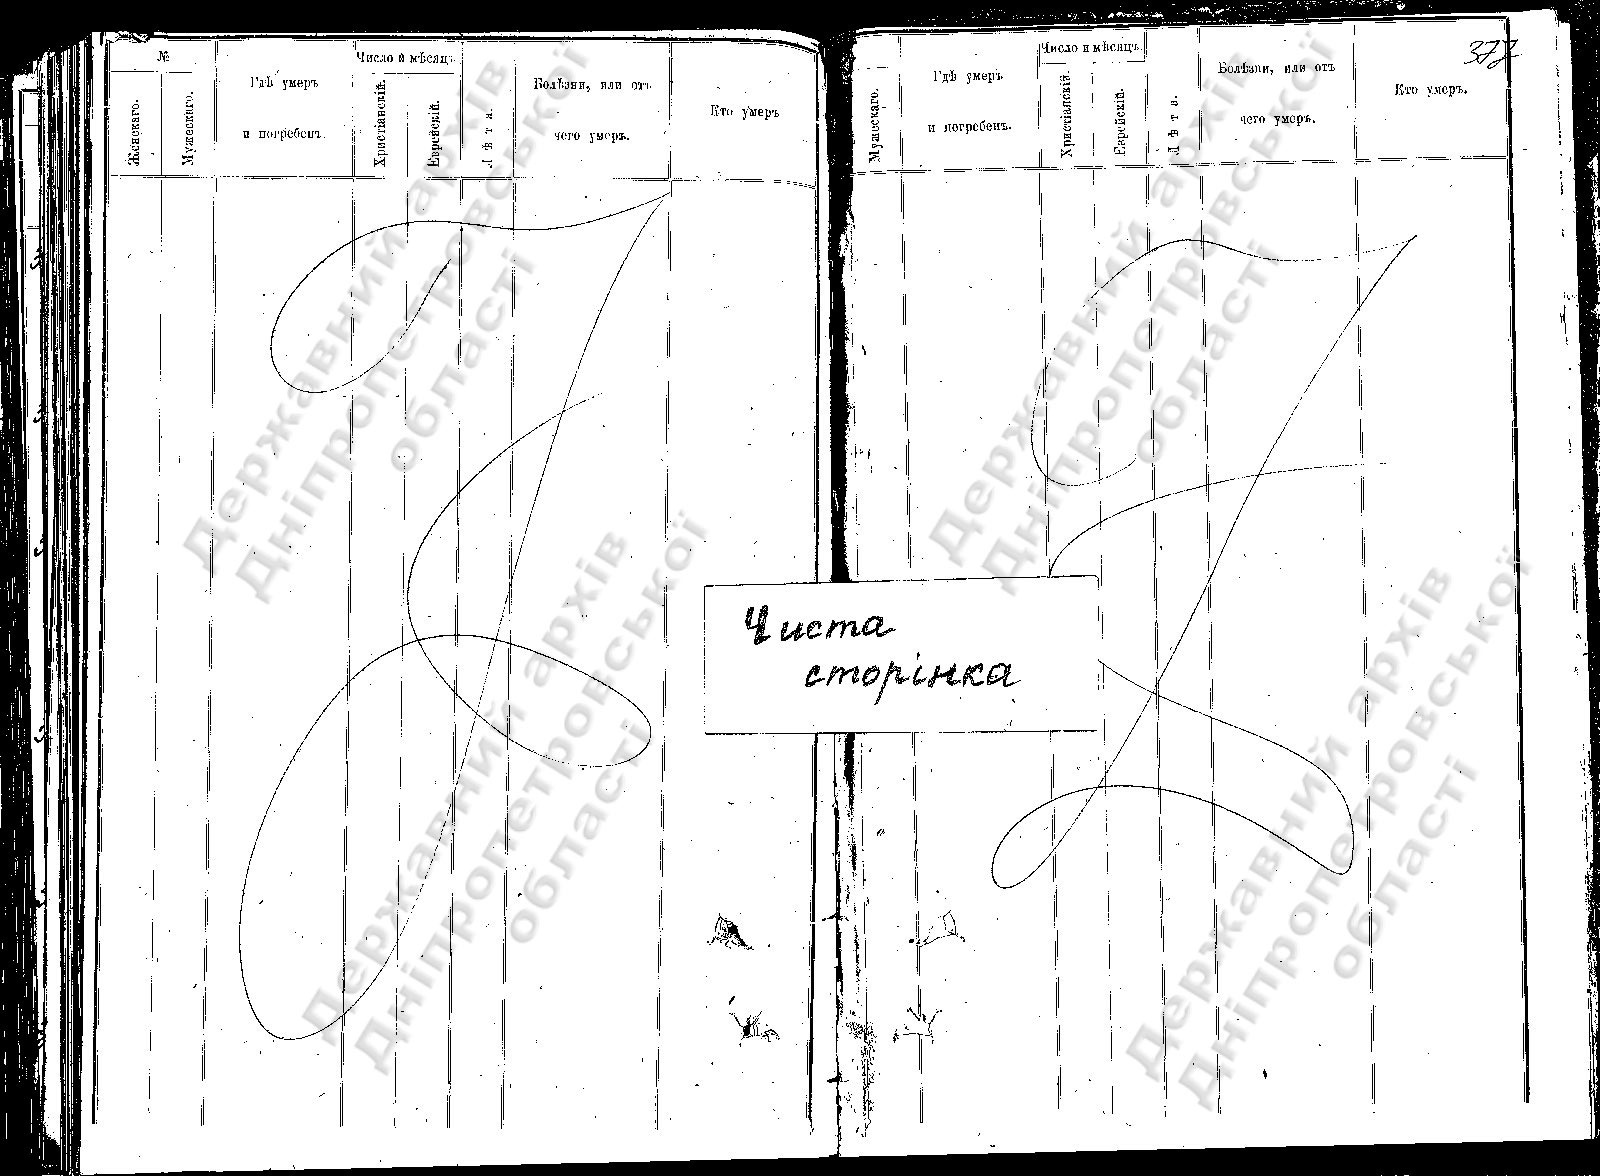 №
Женскаго.
Мужескаго.
Гдѣ умеръ
и погребенъ.
Число и мѣсяцъ.
Христіанскій.
Еврейскій.
Лѣта.
Болѣзни, или отъ
чего умеръ.
Кто умеръ
Мужескаго.
Гдѣ умеръ
и погребенъ.
Число и мѣсяцъ.
Христіанскій.
Еврейскій.
Лѣта.
Болѣзни, или отъ
чего умеръ.
Кто умеръ.
377
Чиста
сторінка
Державний архів
Дніпропетровської
області
Державний архів
Дніпропетровської
області
Державний архів
Дніпропетровської
області
Державний архів
Дніпропетровської
області